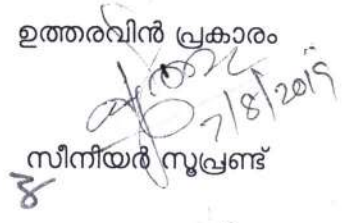 ഉത്തരവിൻ പ്രകാരം
7/8/2019
സീനിയർ സൂപ്രണ്ട്